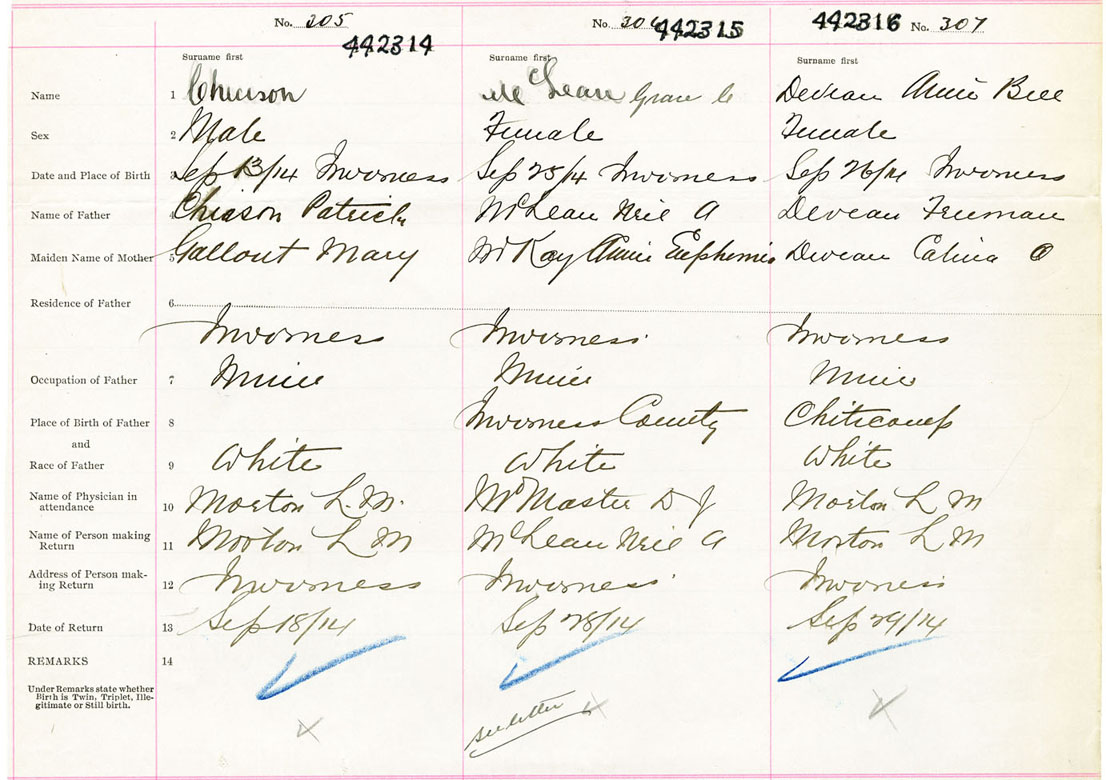 No. 205 No. 306 442316 No. 307
442314 442315
Surname first Surname first Surname first
Name 1 Chiason McLean Grace C Deveau Annie Bell
Sex 2 Male Female Female
Date and Place of Birth 3 Sep 13/14 Inverness Sep 25/14 Inverness Sep 26/14 Inverness
Name of Father 4 Chiason Patrick McLean Neil A Deveau Freeman
Maiden Name of Mother 5 Gallout Mary McKay Annie Euphemia Deveau Calina O
Residence of Father 6
Inverness Inverness Inverness
Occupation of Father 7 Miner Miner Miner
Place of Birth of Father 8 Inverness County Chiticamp
and
Race of Father 9 White White White
Name of Physician in
attendance 10 Morton L. M. McMaster D J Morton L M
Name of Person making
Return 11 Morton L M McLean Neil A Morton L M
Address of Person mak-
ing Return 12 Inverness Inverness Inverness
Date of Return 13 Sep 18/14 Sep 28/14 Sep 29/14
REMARKS 14
Under Remarks state whether
Birth is Twin, Triplet, Ille-
gitimate or Still birth.
see letter